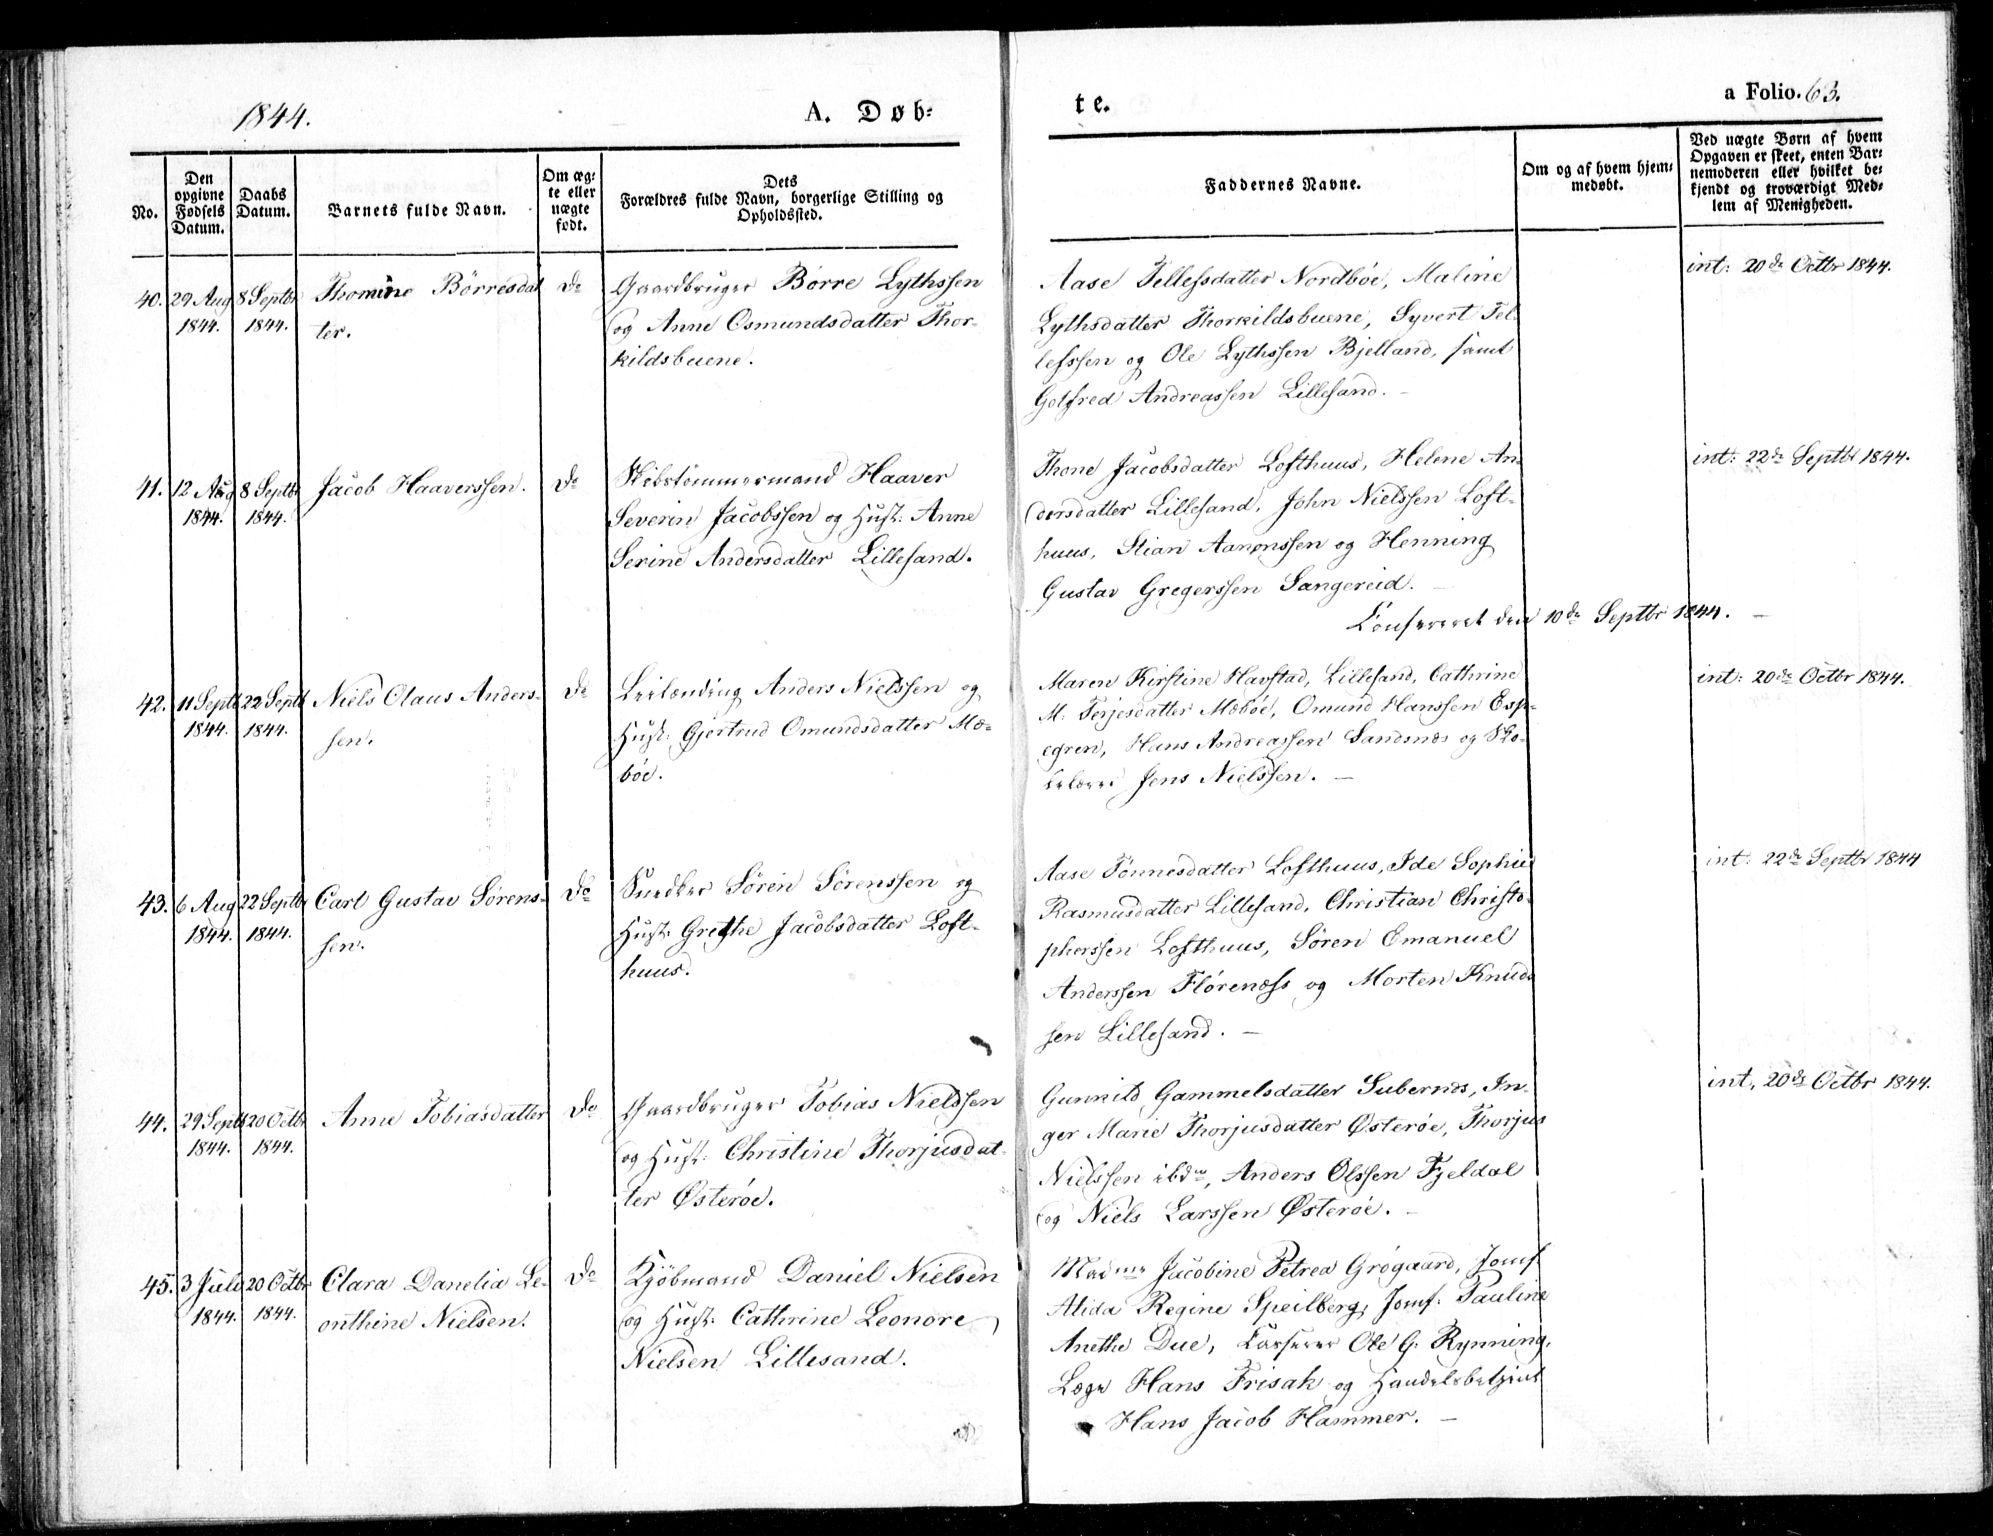 1844.
A. Døb-
te.
a Folio. 63.
No.
Den opgivne Fødsels Datum.
Daabs Datum.
Barnets fulde Navn.
Om ægte eller uægte født.
Dets Forældres fulde Navn, borgerlige Stilling og Opholdssted.
Faddernes Navne.
Om og af hvem hjemmedøbt.
Ved uægte Børn af hvem Opgaven er skeet, enten Barnemoderen eller hvilket bekjendt og troværdigt Medlem af Menigheden.
40. 29 Aug 8 Septbr Thomine Börresdat do Gaardbruger Börre Lythssen
1844. 1844. ter. og Anne Osmundsdatter Thor-
kildsbuene.
Aase Tellefsdatter Nordböe, Maline
Lythsdatter Thorkildsbuene, Syvert Tel-
lefssen og Ole Lythssen Bjelland, samt
Golfred Andreassen Lillesand. –
int: 20de Octbr 1844.
41. 12 Aug 8 Septbr Jacob Haaverssen. do Skibstömmermand Haaver
1844. 1844. Severin Jacobssen og Hust: Anne
Serine Andersdatter Lillesand.
Thone Jacobsdatter Lofthuus, Helene An-
dersdatter Lillesand, John Nielssen Loft-
huus, Stian Aanonssen og Henning
Gustav Gregerssen Sangereid. –
int: 22de Septbr 1844.
Confereret den 10de Septbr 1844. –
42. 11 Septb 22 Septb Niels Olaus Anders- do Leilænding Anders Nielssen og
1844. 1844. sen. Hust: Gjertrud Omundsdatter Mæ-
böe.
Maren Kirstine Havstad, Lillesand, Cathrine
M: Terjesdatter Mæböe, Omund Hanssen Esp-
egren, Hans Andreassen Sandsnæs og Sko-
lelærer Jens Nielssen. –
int: 20de Octbr 1844.
43. 6 Aug 22 Septbr Carl Gustav Sörens- do Snedker Sören Sörenssen og
1844. 1844. sen. Hust: Grethe Jacobsdatter Loft-
huus.
Aase Tönnesdatter Lofthuus, Ide Sophie
Rasmusdatter Lillesand, Christian Christo-
pherssen Lofthuus, Sören Emanuel
Anderssen Flörenæss og Morten Knuds
sen Lillesand. –
int: 22de Septbr 1844
44. 29 Septb 20 Octbr Anne Tobiasdatter do Gaardbruger Tobias Nielssen
1844. 1844. og Hust: Christine Thorjusdat-
ter Østeröe.
Gunnild Gammelsdatter Subernæs, In-
ger Marie Thorjusdatter Østeröe, Thorjus
Nielssen ibdm, Anders Olssen Fjeldal
og Niels Larssen Østeröe. –
int, 20de Octbr 1844.
45. 3 July 20 Octbr Clara Danelia Le- do Kjöbmand Daniel Nielsen
1844. 1844. onthine Nielsen. og Hust: Cathrine Leonore
Nielsen Lillesand.
Madme Jacobine Petrea Grögaard, Jomf
Alida Regine Speilberg, Jomf: Pauline
Anethe Due, Casserer Ole G. Rynning,
Læge Hans Frisak og Handelsbetjent
Hans Jacob Hammer. –